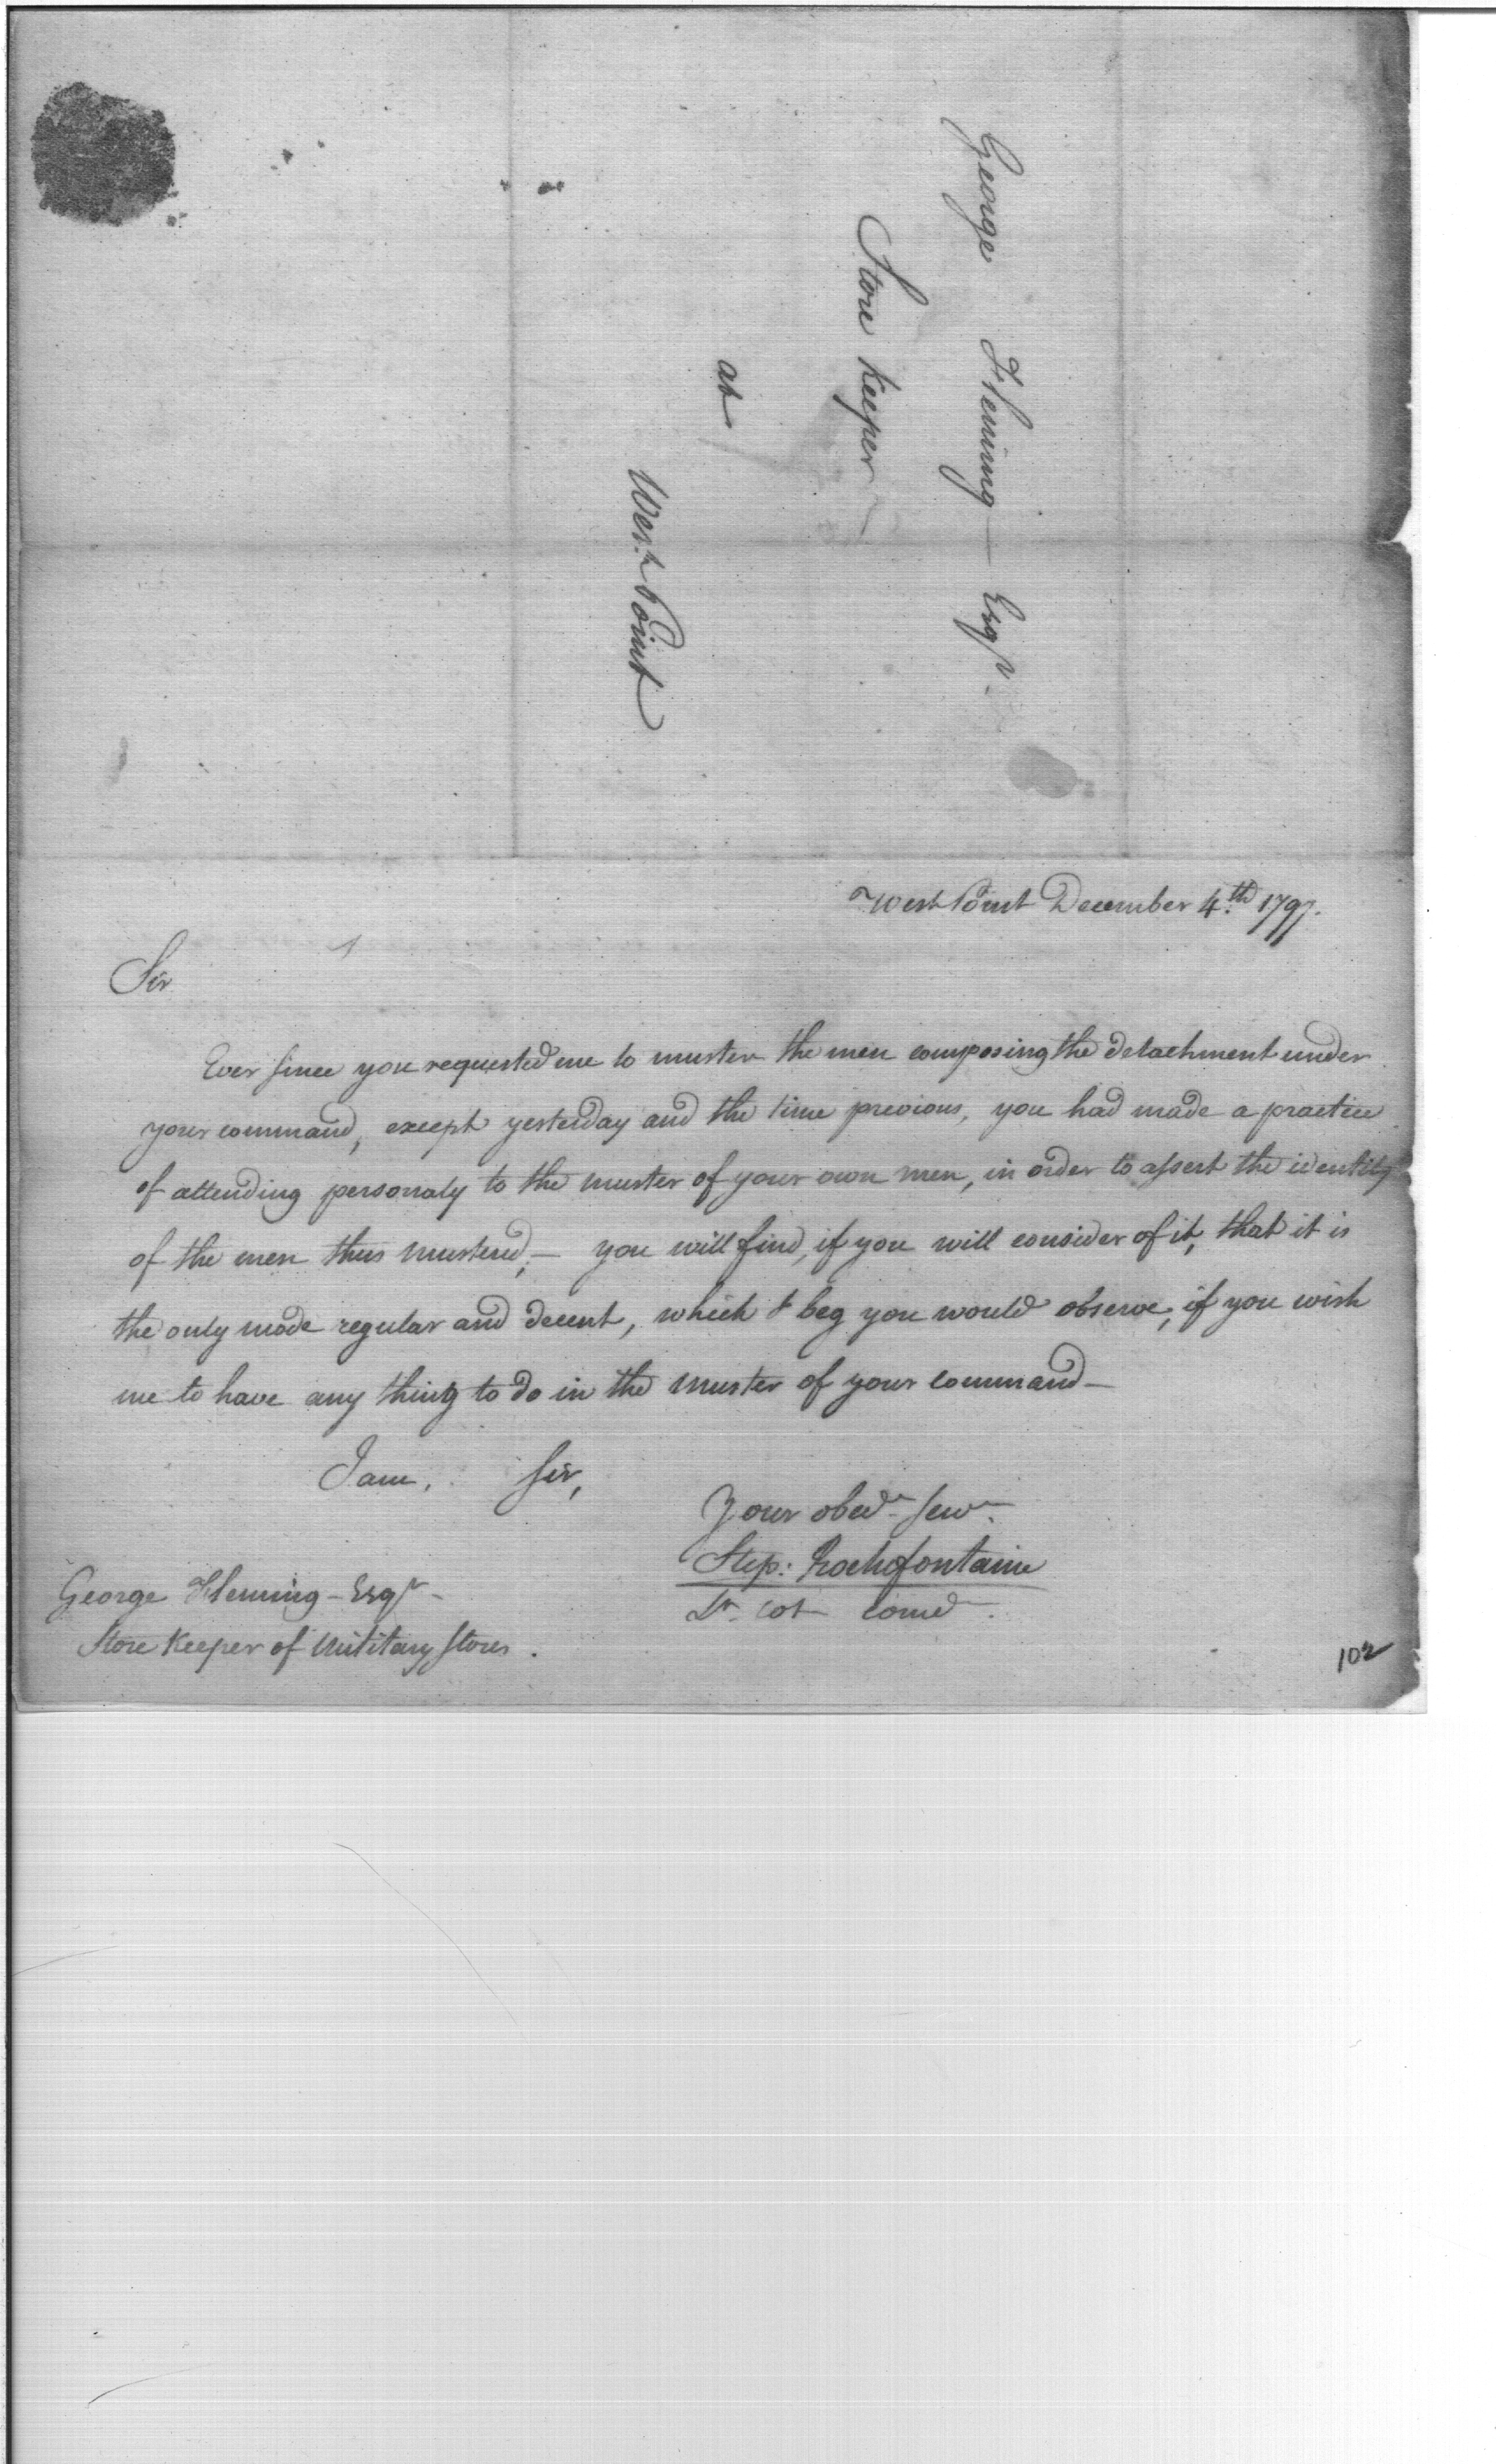 George Fleming — Esqr.
Store Keeper —
at
West Point
West Point December 4.th 1797.
Sir
Ever since you requested me to muster the men composing the detachment under
your command, except yesterday and the time previous, you had made a practice
of attending personaly to the muster of your own men, in order to assert the identity
of the men thus mustered, — you will find, if you will consider of it, that it is
the only mode regular and decent, which I beg you would observe, if you wish
me to have any thing to do in the muster of your command —
I am, Sir,
Your obed. serv.
Step: Rochefontaine
Lt. Col. Comd.
George Fleming — Esqr —
Store Keeper of Military Stores.
102